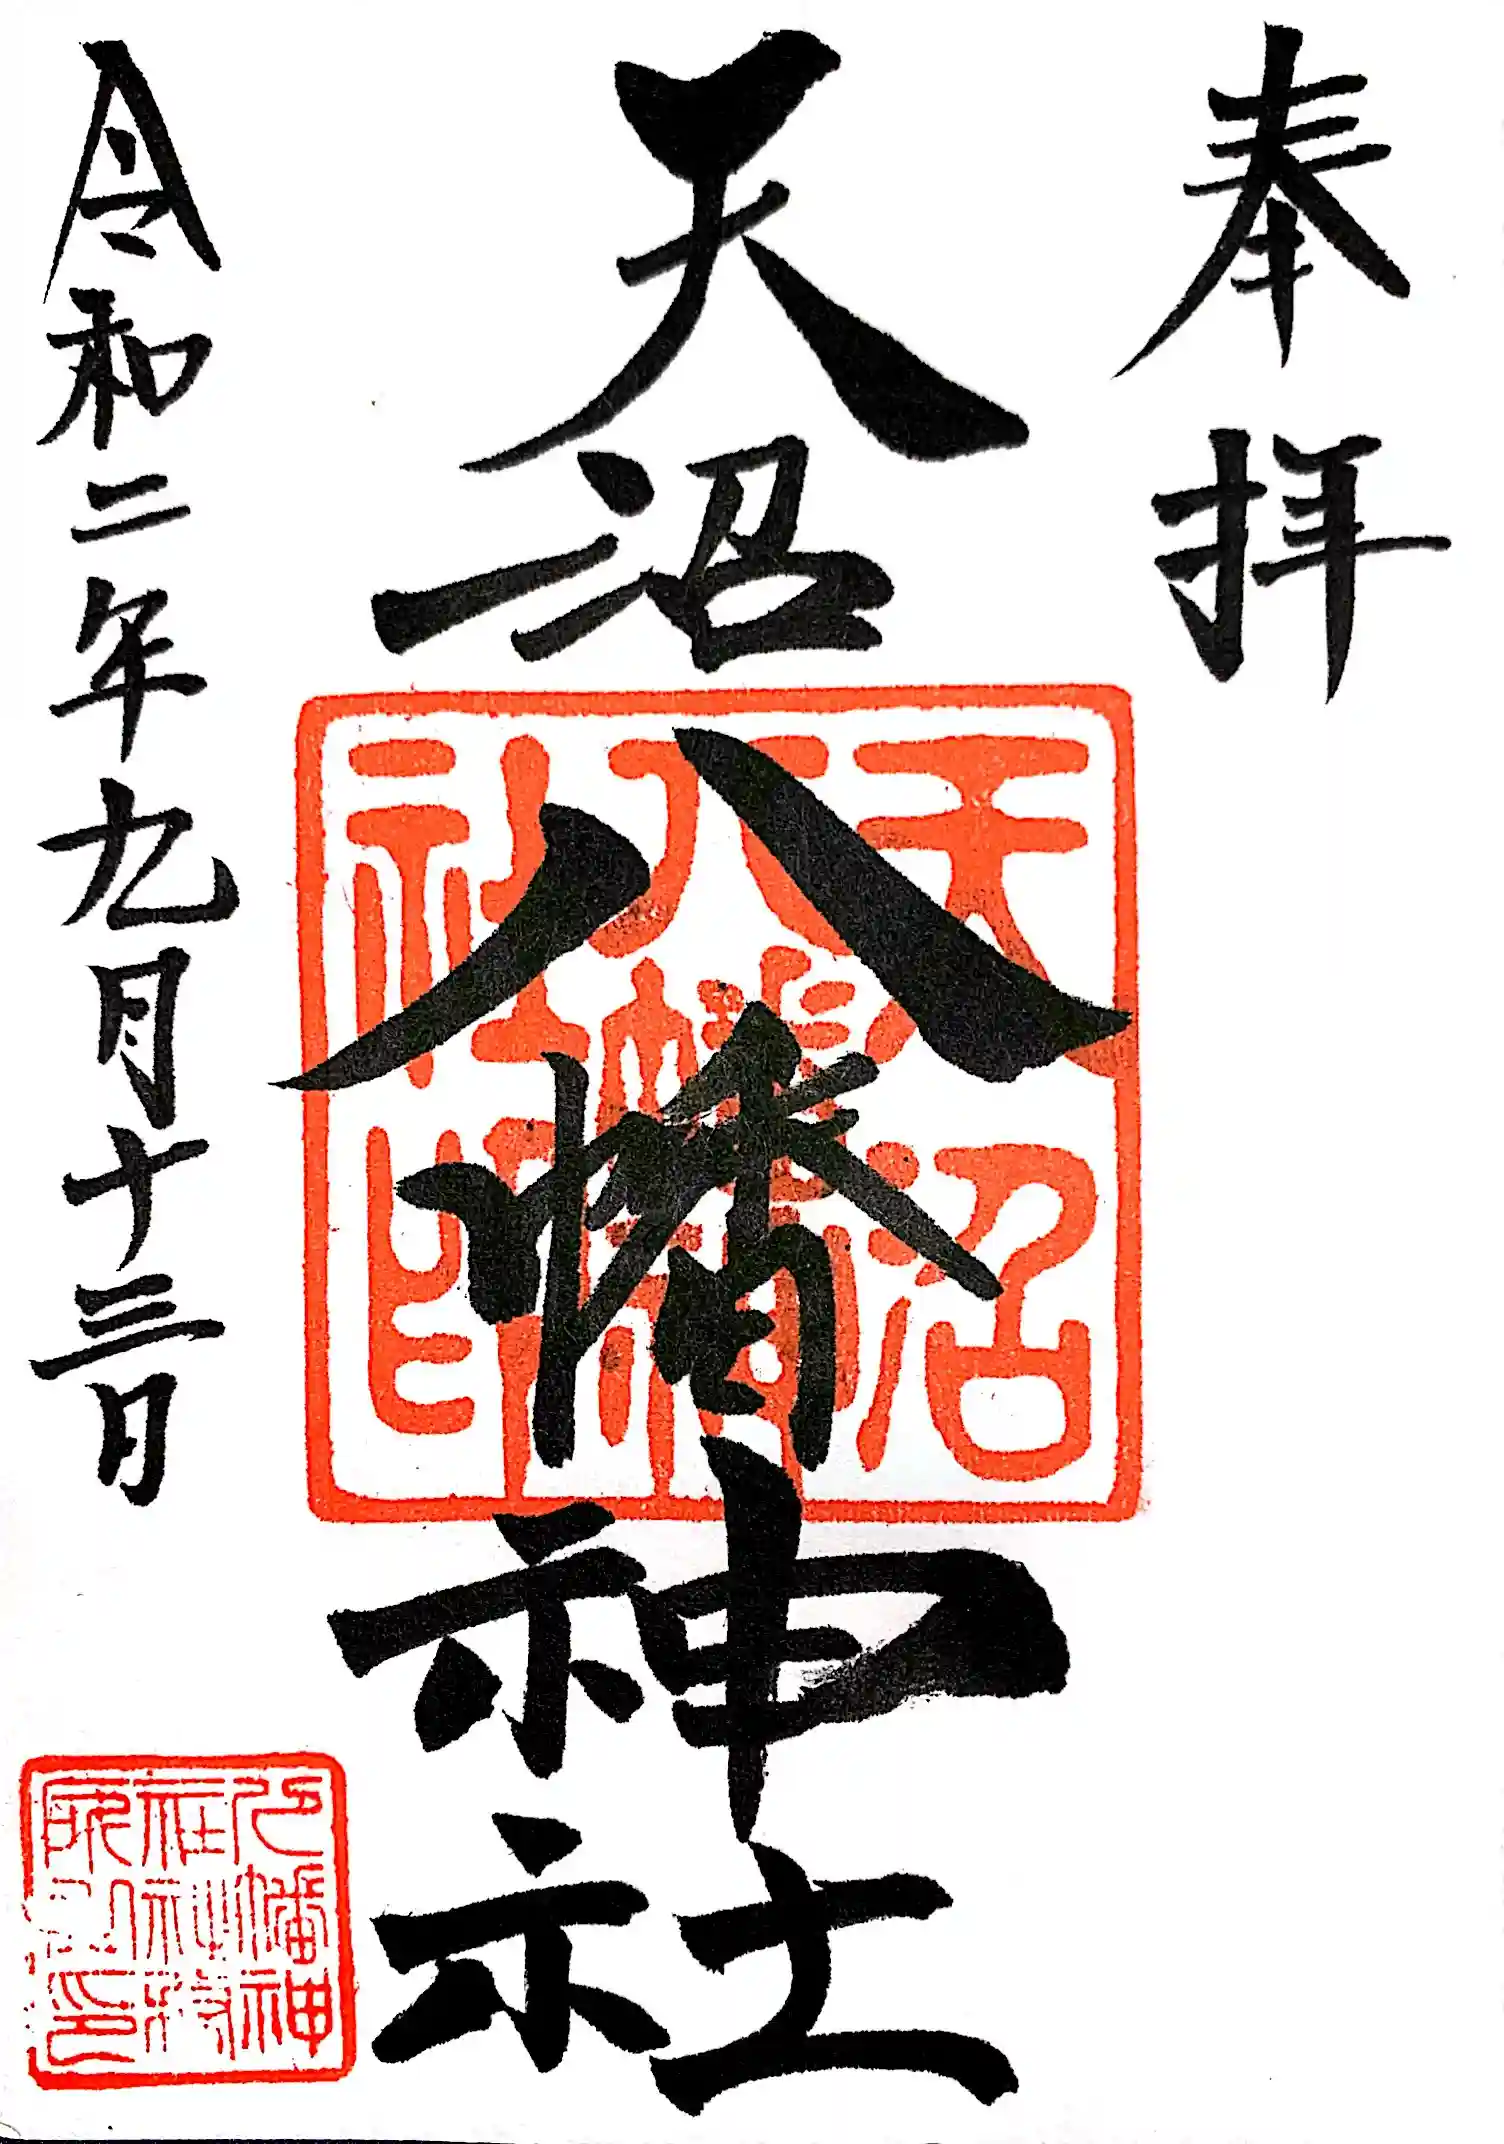 奉拝
天沼八幡神社
令和二年九月十三日
天沼
八幡
社印
八幡神